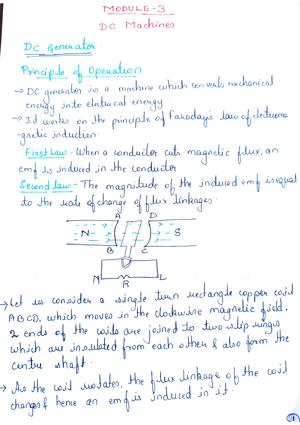 MODULE-3
DC Machines
DC Generator
Principle of Operation
→ DC generator is a machine which converts mechanical
energy into eletrical energy
→ It works on the principle of Faradays law of electroma
-gnetic induction.
First Law:- When a conductor cuts magnetic flux, an
emf is induced in the conductor
Second law - The magnitude of the induced emf is equal
to the rate of change of flux linkages.
A D
N S
B C
N R L
→ Let us consider a single turn rectangle copper coil
ABCD, which moves in the clockwise magnetic field.
2 ends of the coils are joined to two slip rings
which are insulated from each other & also form the
centre shaft.
→ As the coil rotates, the flux linkage of the coil
changes & hence an emf is induced in it.
1